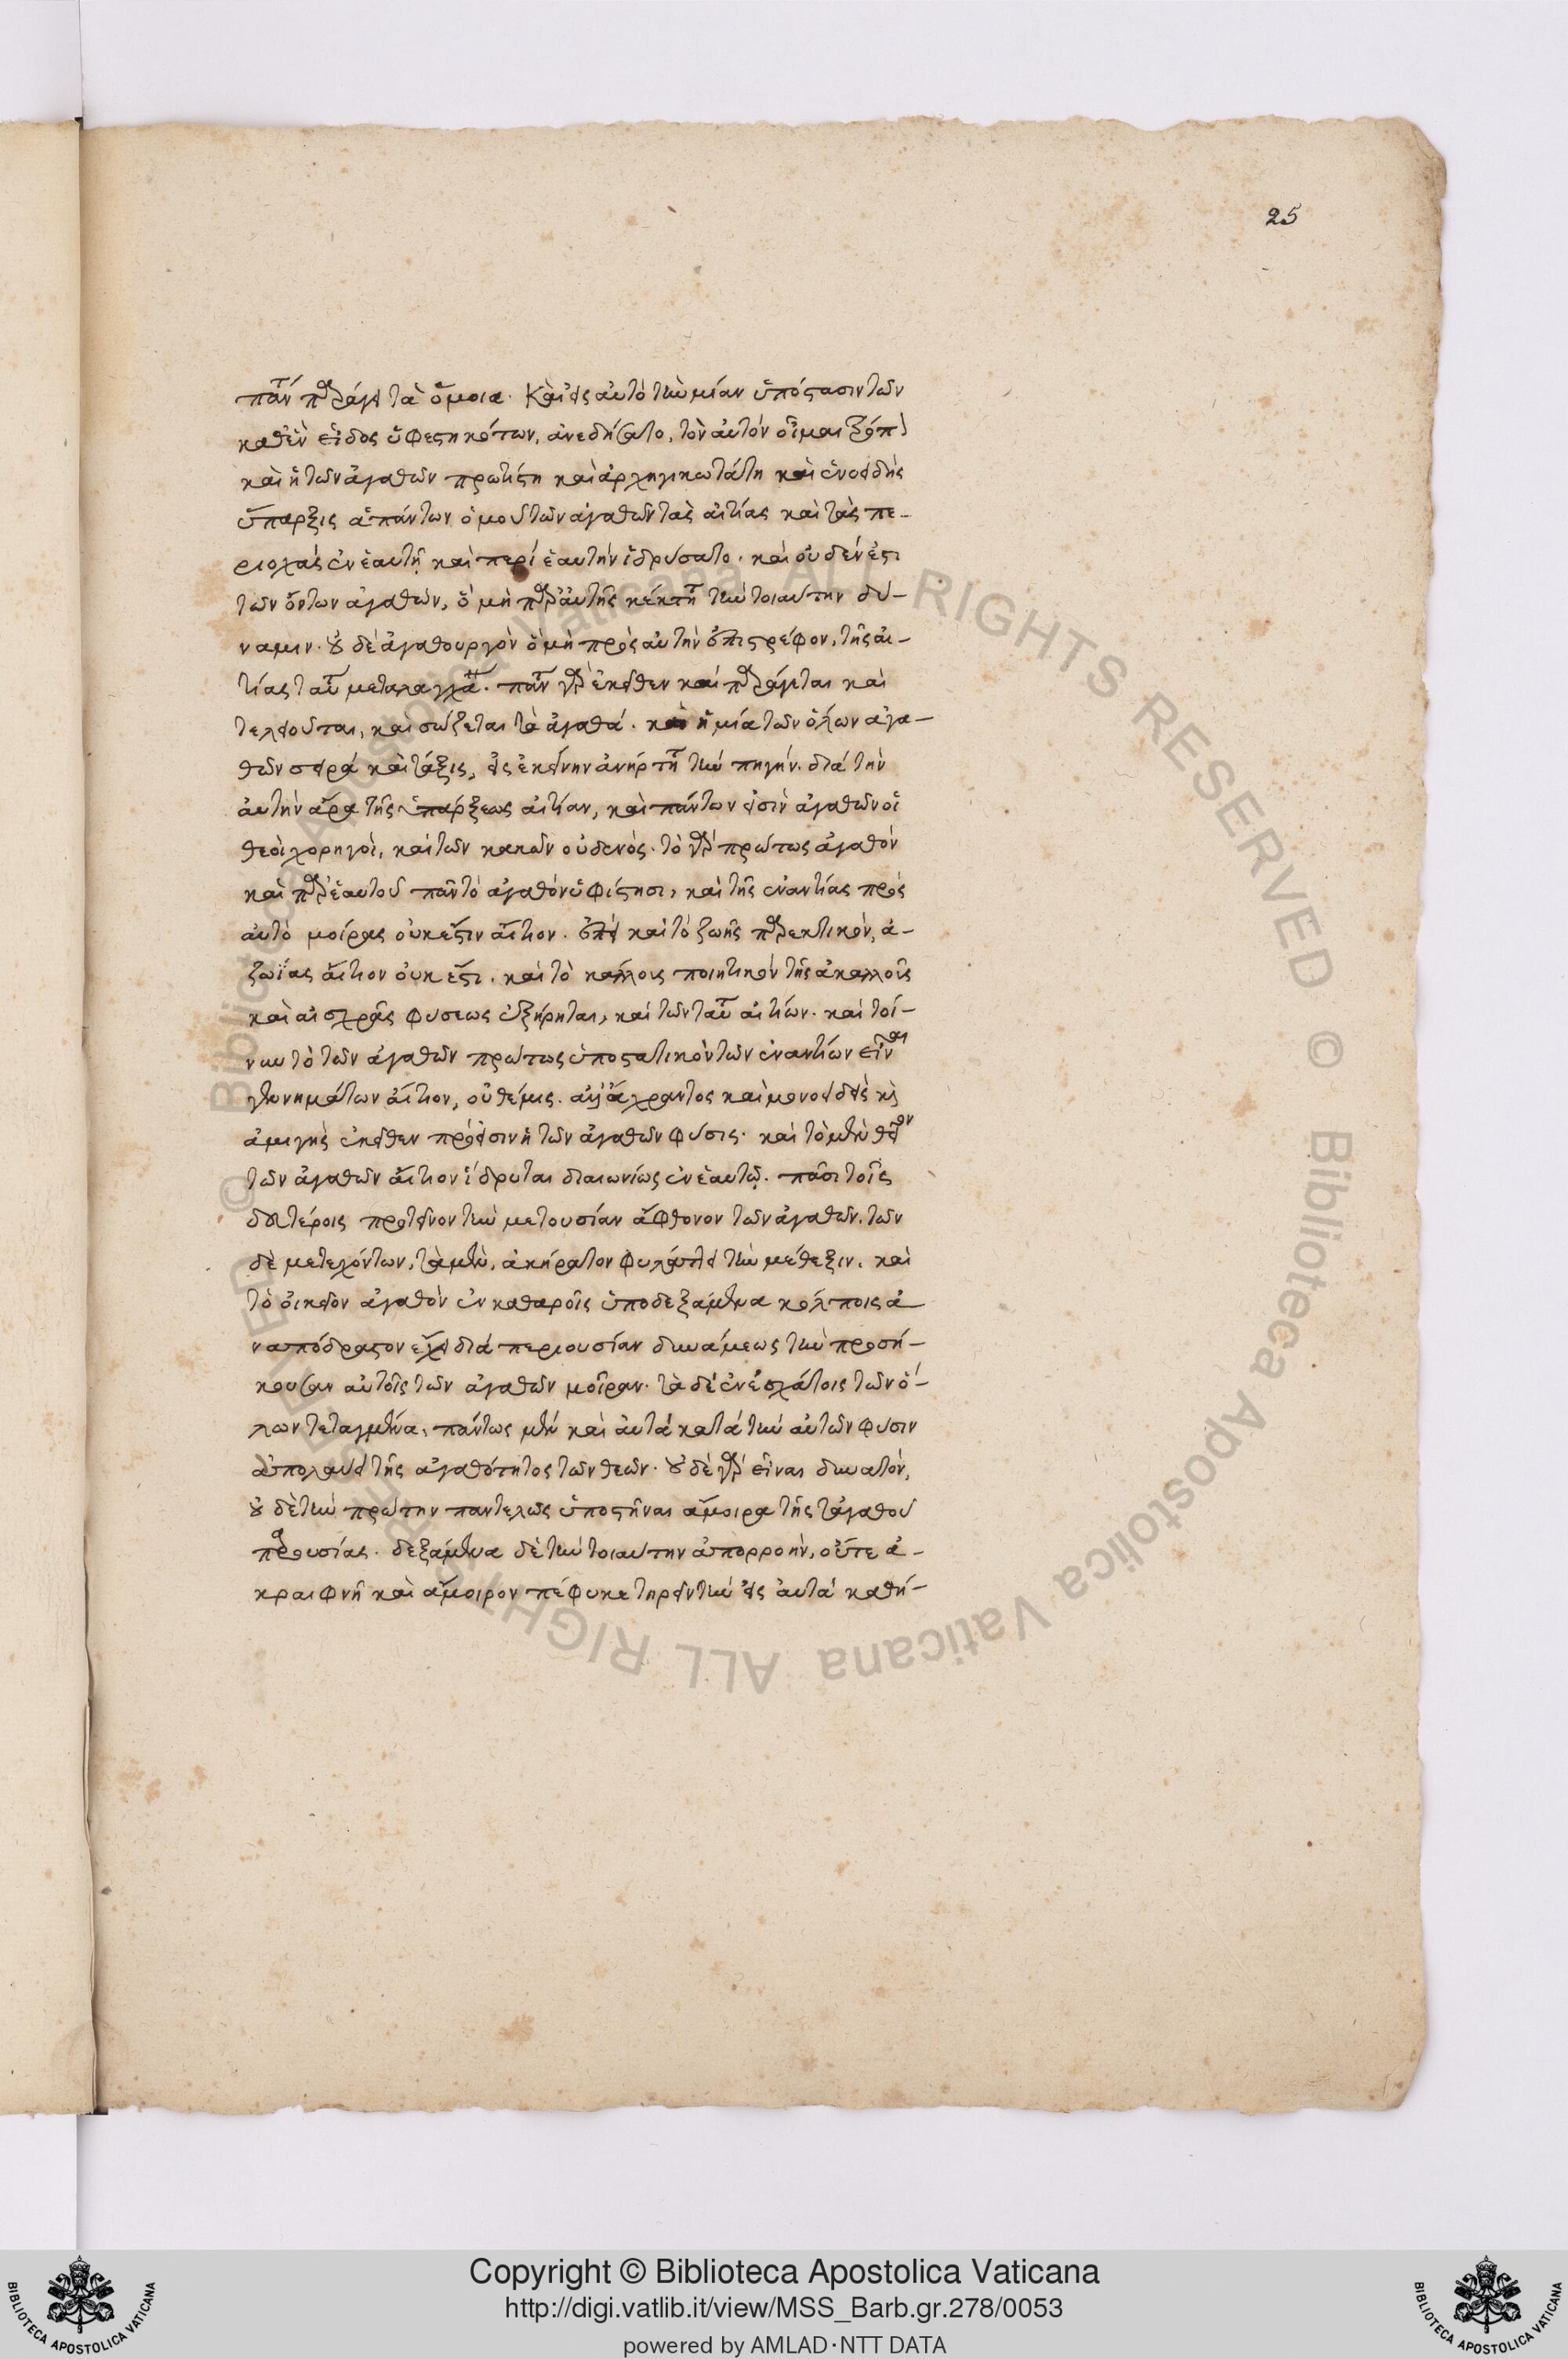 25
πάντα παράγει τὰ ὅμοια. Καὶ εἰς αὐτὸ τὴν μίαν ὑπόστασιν τῶν
καθ' ἓν εἶδος ὑφεστηκότων, ἀνεδήσατο, τὸν αὐτὸν οἶμαι τρόπον
καὶ ἡ τῶν ἀγαθῶν πρωτίστη καὶ ἀρχηγικωτάτη καὶ ἑνοειδὴς
ὕπαρξις ἁπάντων ὁμοῦ τῶν ἀγαθῶν τὰς αἰτίας καὶ τὰς πε-
ριοχὰς ἐν ἑαυτῇ καὶ περὶ ἑαυτὴν ἱδρύσατο. καὶ οὐδέν ἐστι
τῶν ὄντων ἀγαθῶν, ὃ μὴ παρ' αὐτῆς κέκτηται τὴν τοιαύτην δύ-
ναμιν. οὐδὲ ἀγαθουργὸν ὃ μὴ πρὸς αὐτὴν ἐπιστρέφον, τῆς αἰ-
τίας ταύτης μεταλαγχάνει. πάντα γὰρ ἐκεῖθεν καὶ παράγεται καὶ
τελειοῦται, καὶ σώζεται τὰ ἀγαθά. καὶ ἡ μία τῶν ὅλων ἀγα-
θῶν σειρὰ καὶ τάξις, εἰς ἐκείνην ἀνήρτηται τὴν πηγήν. διὰ τὴν
αὐτὴν ἄρα τῆς ὑπάρξεως αἰτίαν, καὶ πάντων εἰσὶν ἀγαθῶν οἱ
θεοὶ χορηγοὶ, καὶ τῶν κακῶν οὐδενός. τὸ γὰρ πρώτως ἀγαθὸν
καὶ παρ' ἑαυτοῦ πᾶν τὸ ἀγαθὸν ὑφίστησι, καὶ τῆς ἐναντίας πρὸς
αὐτὸ μοίρας οὐκ ἔστιν αἴτιον. ἐπεὶ καὶ τὸ ζωῆς παρεκτικὸν, ἀ-
ζωΐας αἴτιον οὐκ ἔστι. καὶ τὸ κάλλους ποιητικὸν τῆς ἀκαλλοῦς
καὶ αἰσχρᾶς φύσεως ἐξήρηται, καὶ τῶν ταύτης αἰτίων. καὶ τοί-
νυν τὸ τῶν ἀγαθῶν πρώτως ὑποστατικὸν τῶν ἐναντίων εἶναι
γεννημάτων αἴτιον, οὐ θέμις. ἀλλ' ἄχραντος καὶ μονοειδὴς καὶ
ἀμιγὴς ἐκεῖθεν πρόεισιν ἡ τῶν ἀγαθῶν φύσις. καὶ τὸ μὲν θεῖον
τῶν ἀγαθῶν αἴτιον ἵδρυται διαιωνίως ἐν ἑαυτῷ. πᾶσι τοῖς
δευτέροις προτεῖνον τὴν μετουσίαν ἄφθονον τῶν ἀγαθῶν. τῶν
δὲ μετεχόντων, τὰ μὲν, ἀκήρατον φυλάττει τὴν μέθεξιν. καὶ
τὸ οἰκεῖον ἀγαθὸν ἐν καθαροῖς ὑποδεξάμενα κόλποις ἀ
ναπόδραστον ἔχει διὰ περιουσίαν δυνάμεως τὴν προσή-
κουσαν αὐτοῖς τῶν ἀγαθῶν μοῖραν. τὰ δὲ ἐν ἐσχάτοις τῶν ὅ-
λων τεταγμένα, πάντως μὲν καὶ αὐτὰ κατὰ τὴν αὐτῶν φύσιν
ἀπολαύει τῆς ἀγαθότητος τῶν θεῶν. οὐδὲ γὰρ εἶναι δυνατὸν,
οὐδὲ τὴν πρώτην παντελῶς ὑποστῆναι ἄμοιρα τῆς τἀγαθοῦ
παρουσίας. δεξάμενα δὲ τὴν τοιαύτην ἀπορροὴν, οὔτε ἀ-
κραιφνῆ καὶ ἄμοιρον πέφυκε τηρεῖν τὴν εἰς αὐτὰ καθή-
Copyright © Biblioteca Apostolica Vaticana
http://digi.vatlib.it/view/MSS_Barb.gr.278/0053
powered by AMLAD·NTT DATA